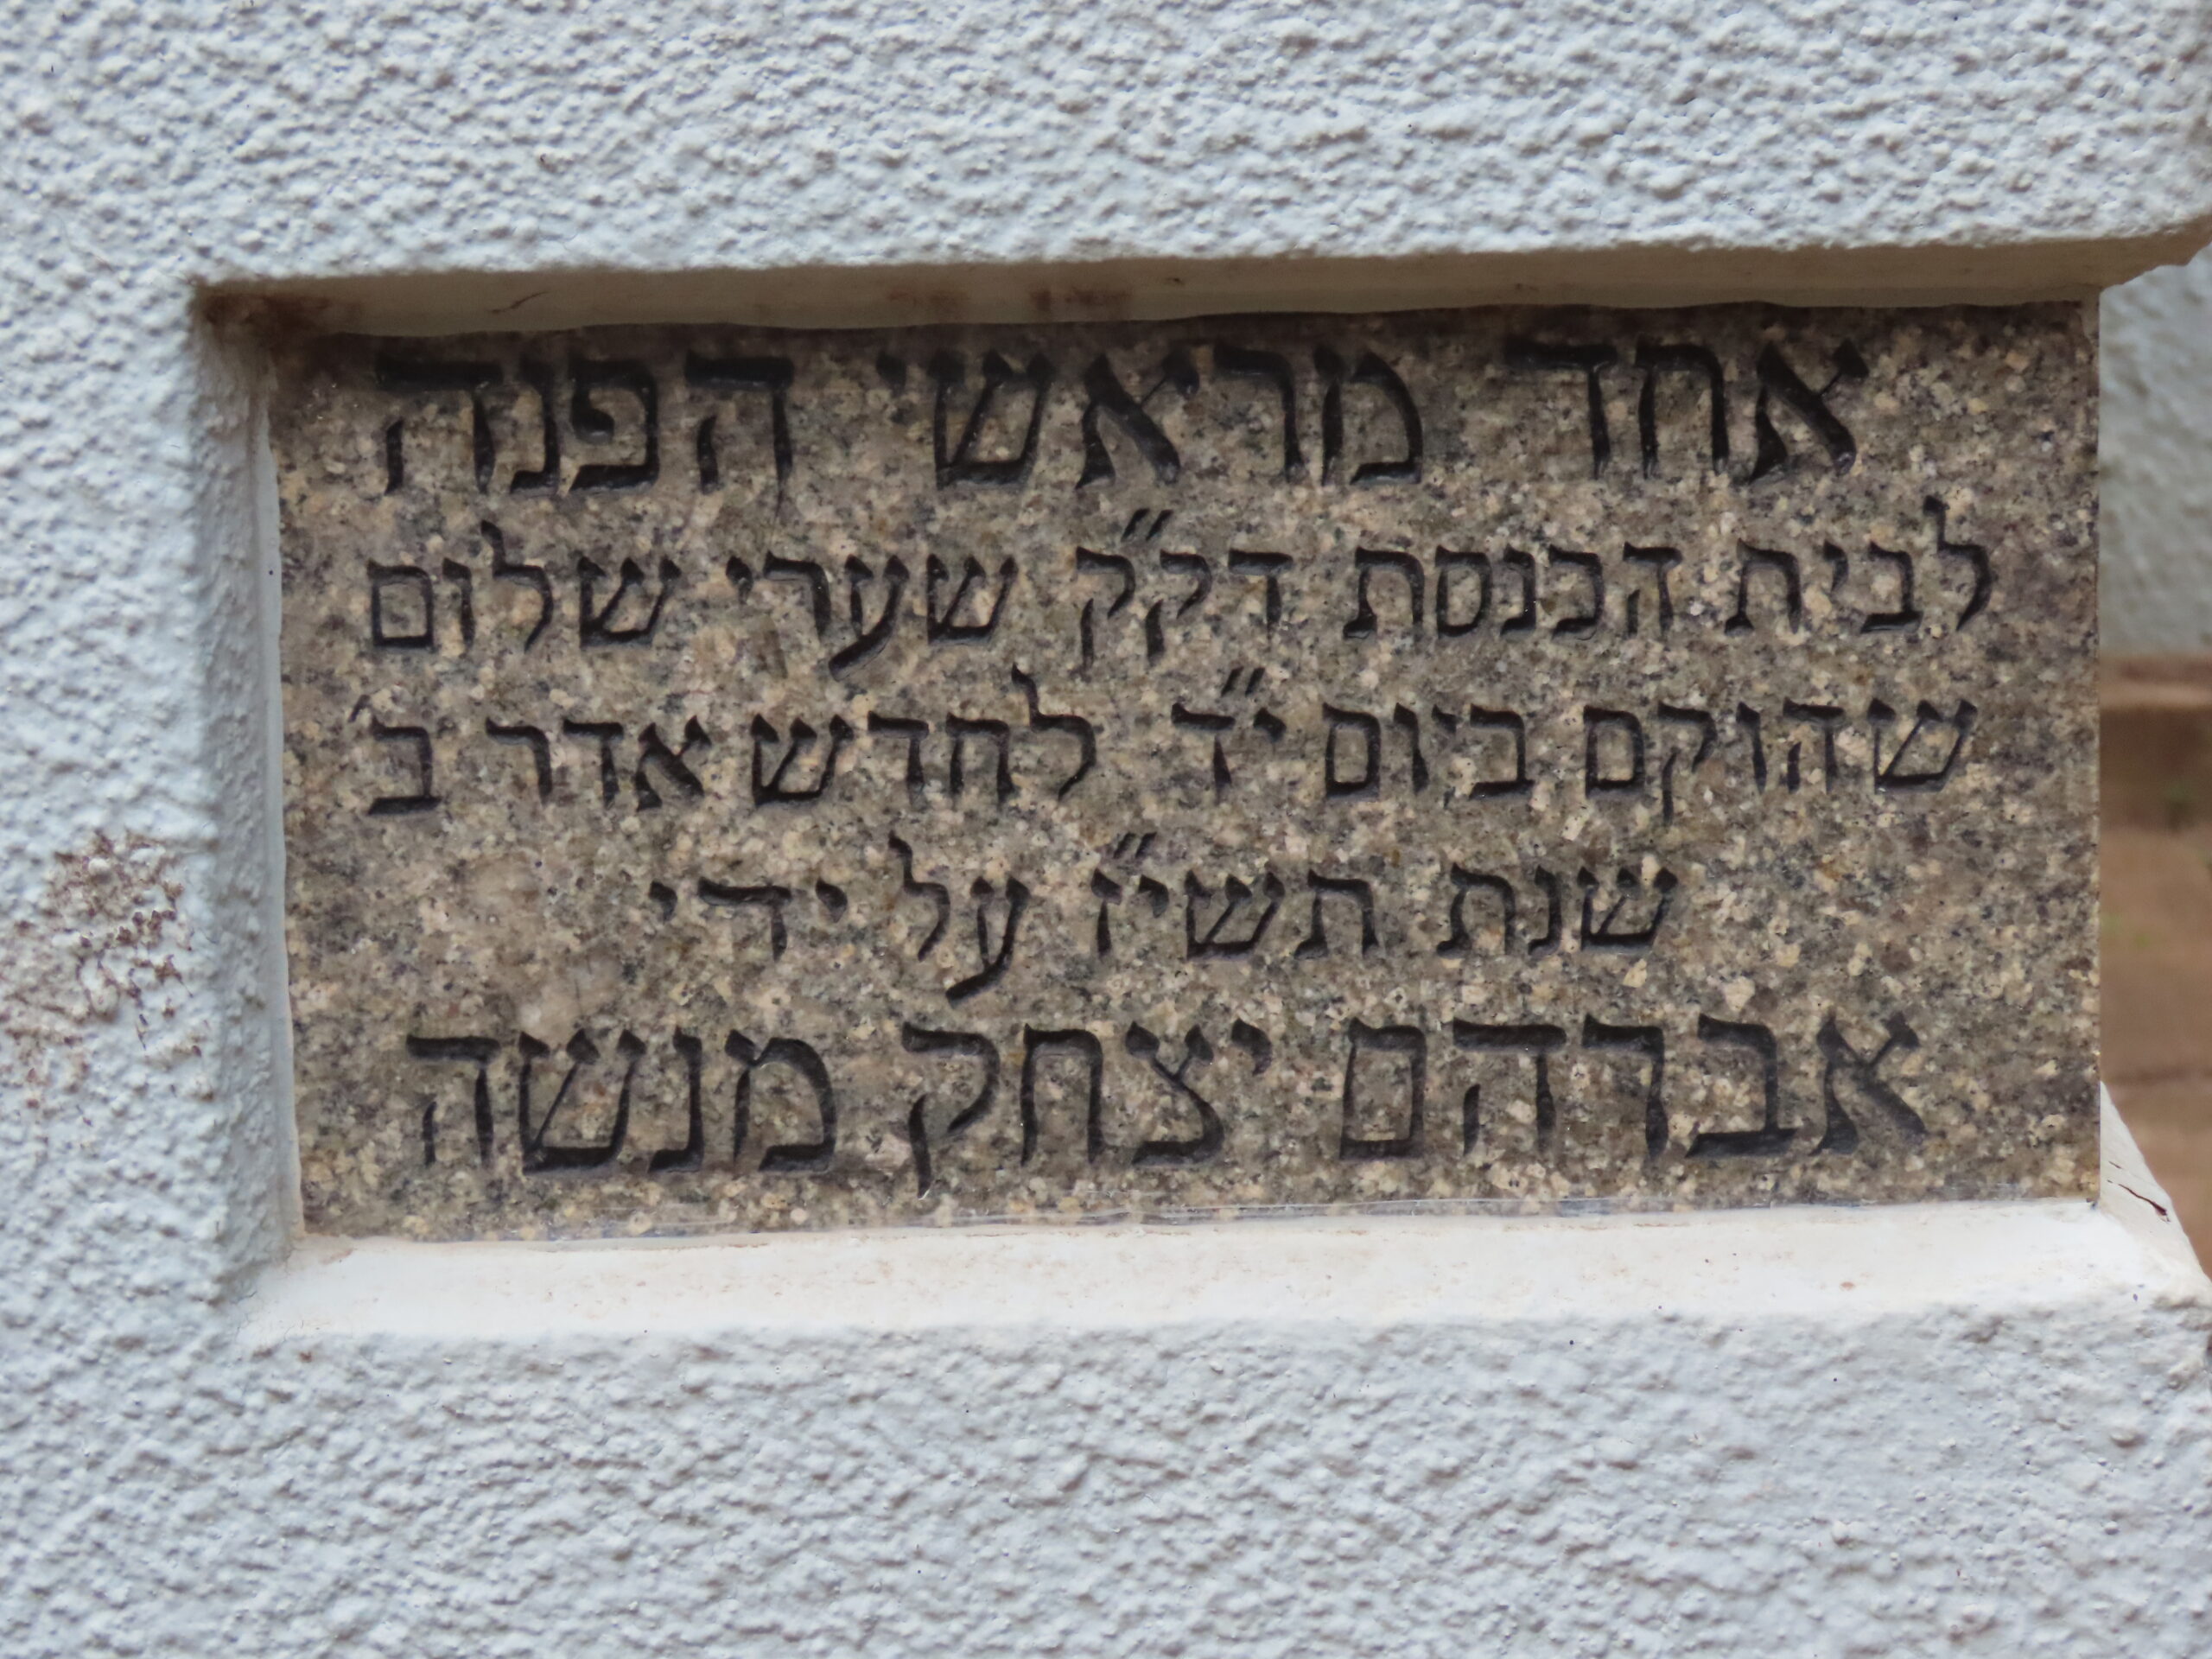 אחד מראשי הפנה
לבית הכנסת דק״ק שערי שלום
שהוקם ביום י״ד לחדש אדר ב׳
שנת תשי״ז על ידי
אברהם יצחק מנשה